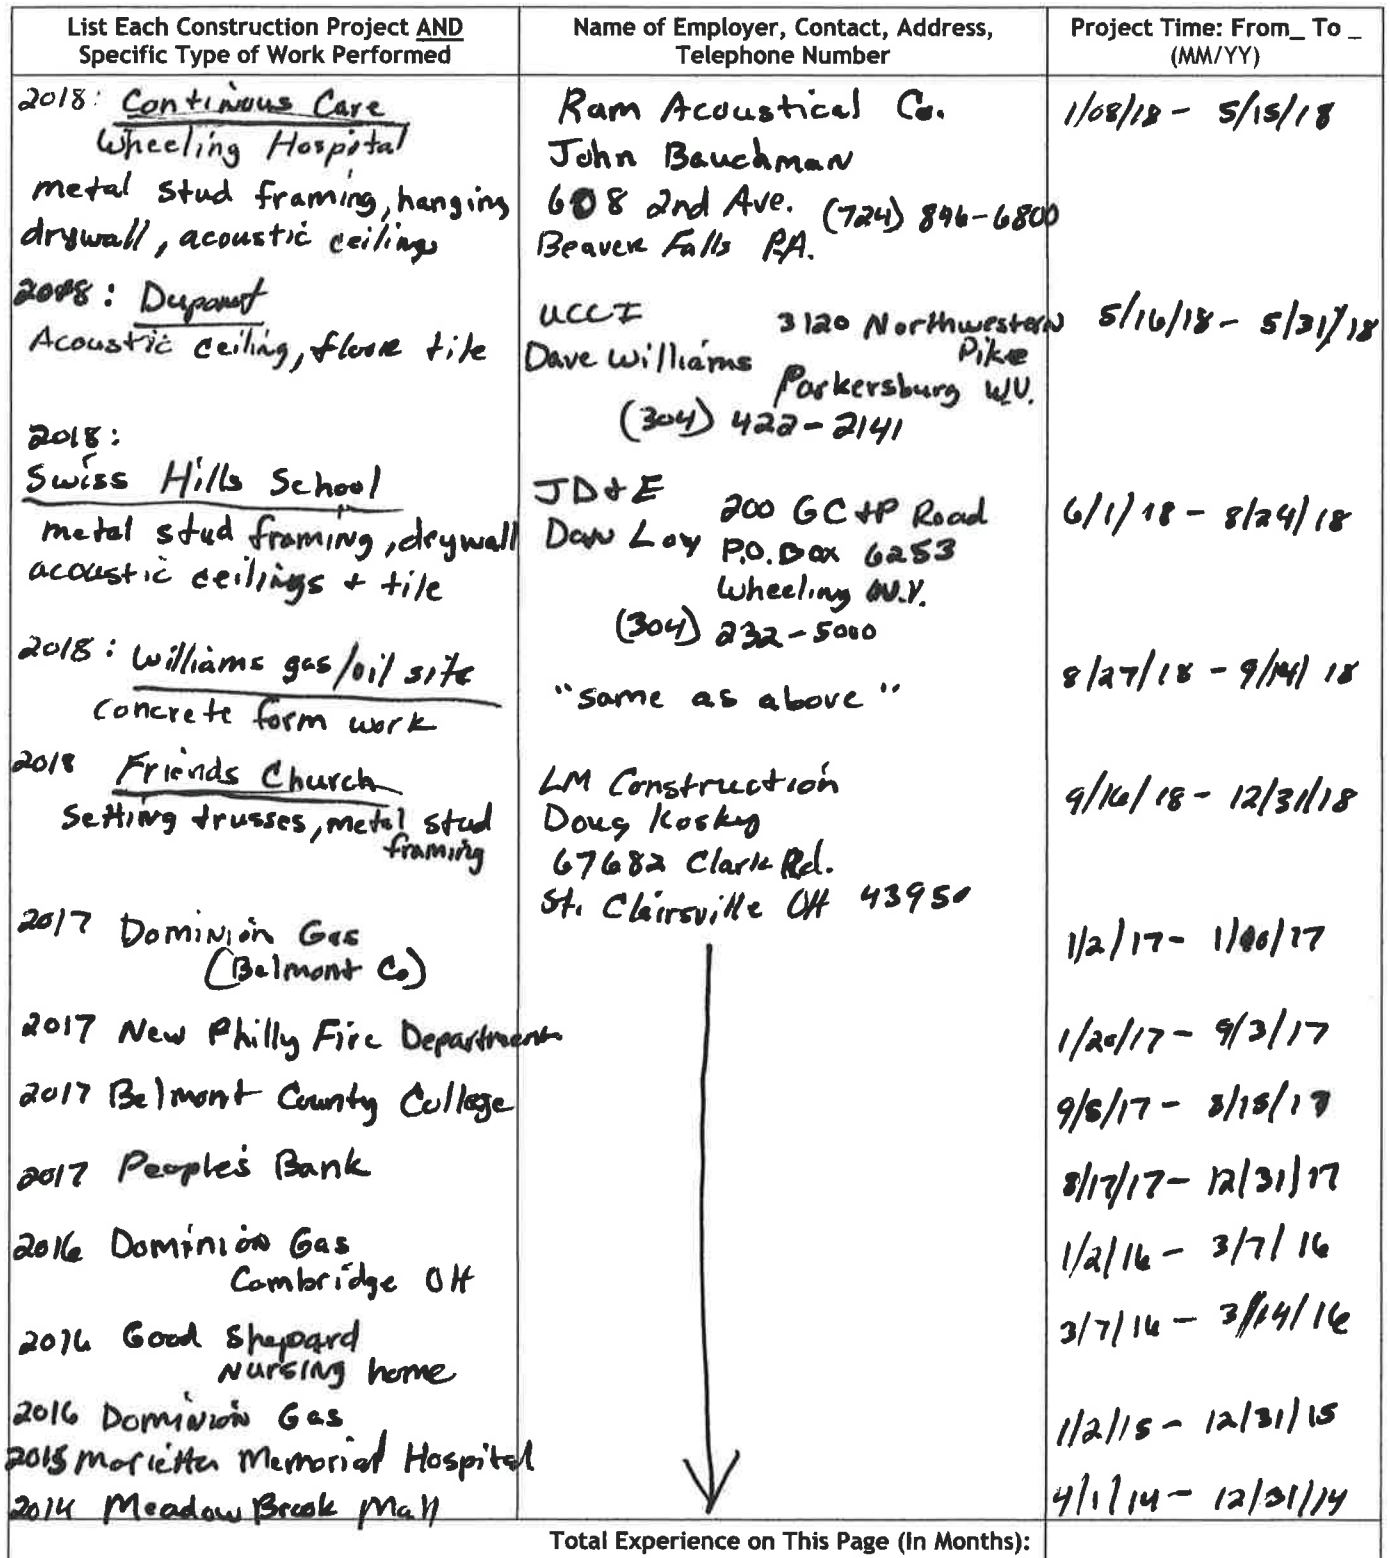 List Each Construction Project AND
Specific Type of Work Performed
Name of Employer, Contact, Address,
Telephone Number
Project Time: From_ To _
(MM/YY)
2018: Continuous Care
Wheeling Hospital
metal stud framing, hanging
drywall, acoustic ceilings
Ram Acoustical Co.
John Bauchman
608 2nd Ave. (724) 846-6800
Beaver Falls PA.
1/08/18 - 5/15/18
2018: Dupont
Acoustic ceiling, floor tile
UCCI
Dave Williams
3120 Northwestern
Pike
Parkersburg W.V.
(304) 422-2141
5/16/18 - 5/31/18
2018:
Swiss Hills School
metal stud framing, drywall
acoustic ceilings + tile
JD+E
Dan Loy
200 GC+P Road
P.O. Box 6253
Wheeling W.V.
(304) 232-5000
6/1/18 - 8/24/18
2018: Williams gas/oil site
concrete form work
"same as above"
8/27/18 - 9/14/18
2018 Friends Church
Setting trusses, metal stud
framing
LM Construction
Doug Kosky
67682 Clark Rd.
St. Clairsville OH 43950
9/16/18 - 12/31/18
2017 Dominion Gas
(Belmont Co)
1/2/17 - /17
2017 New Philly Fire Department
1/20/17 - 9/3/17
2017 Belmont County College
9/5/17 - 8/15/17
2017 People's Bank
8/17/17 - 12/31/17
2016 Dominion Gas
Cambridge OH
1/2/16 - 3/7/16
2016 Good Shepard
Nursing home
3/7/16 - 3/14/16
2016 Dominion Gas
1/2/15 - 12/31/15
2015 Marietta Memorial Hospital
2014 Meadow Brook Mall
4/1/14 - 12/31/14
Total Experience on This Page (In Months):